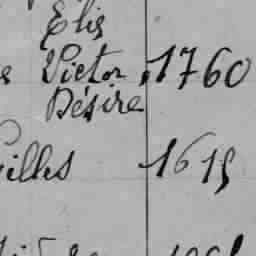 Elis
Victor 1760
Désiré
illes 1615